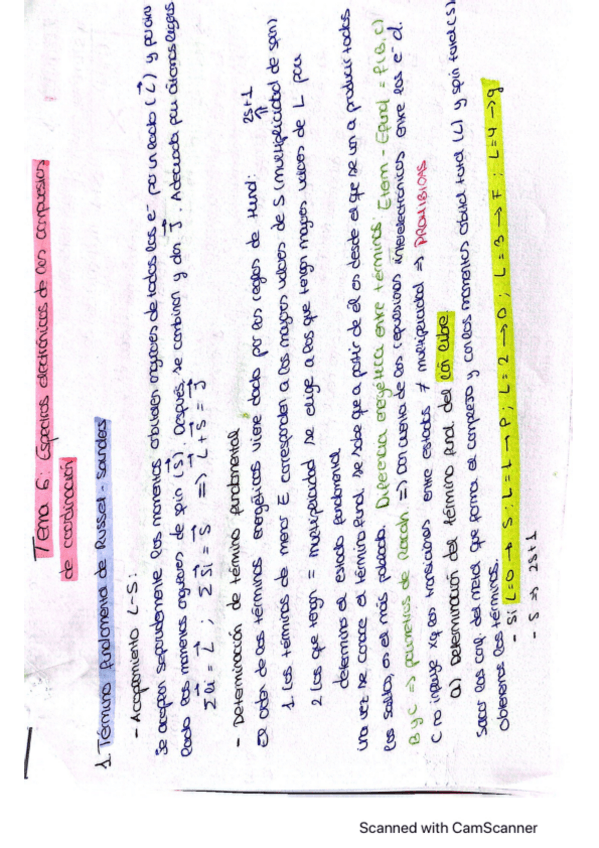 Tema 6: Espectros electrónicos de los compuestos
de coordinación
1. Término fundamental de Russel - Saunders
- Acoplamiento L-S:
Se acoplan separadamente los momentos orbitales angulares de todos los e⁻ por un lado (L⃗) y por otro
lado los momentos angulares de spin (S⃗). Después, se combinan y dan J⃗. Adecuada para átomos ligeros
Σli = L⃗ ; Σsi = S⃗ => L⃗ + S⃗ = J⃗
- Determinación de término fundamental
El orden de los términos energéticos viene dado por las reglas de Hund:
2S+1
1. Los términos de menor E corresponden a los mayores valores de S (multiplicidad de spin)
2 Los que tengan = multiplicidad se elige a los que tengan mayores valores de L para
determina el estado fundamental
Una vez se conoce el término fund, se sabe que a partir de él es desde el que se van a producir todos
los saltos, es el más poblado. Diferencia energética entre términos: Eterm - Efund = f(B, C)
B y C => parámetros de Racah => dan cuenta de las repulsiones interelectrónicas entre los e⁻ d.
C no influye xq las transiciones entre estados ≠ multiplicidad => PROHIBIDAS
a) Determinación del término fund. del ión libre
Sacar las conf. del metal que forma el complejo y con los momentos orbital total (L) y spin total (S)
obtenemos los términos.
- Si L=0 → S ; L=1 → P ; L=2 → D ; L=3 → F ; L=4 → g
- S => 2S+1
Scanned with CamScanner